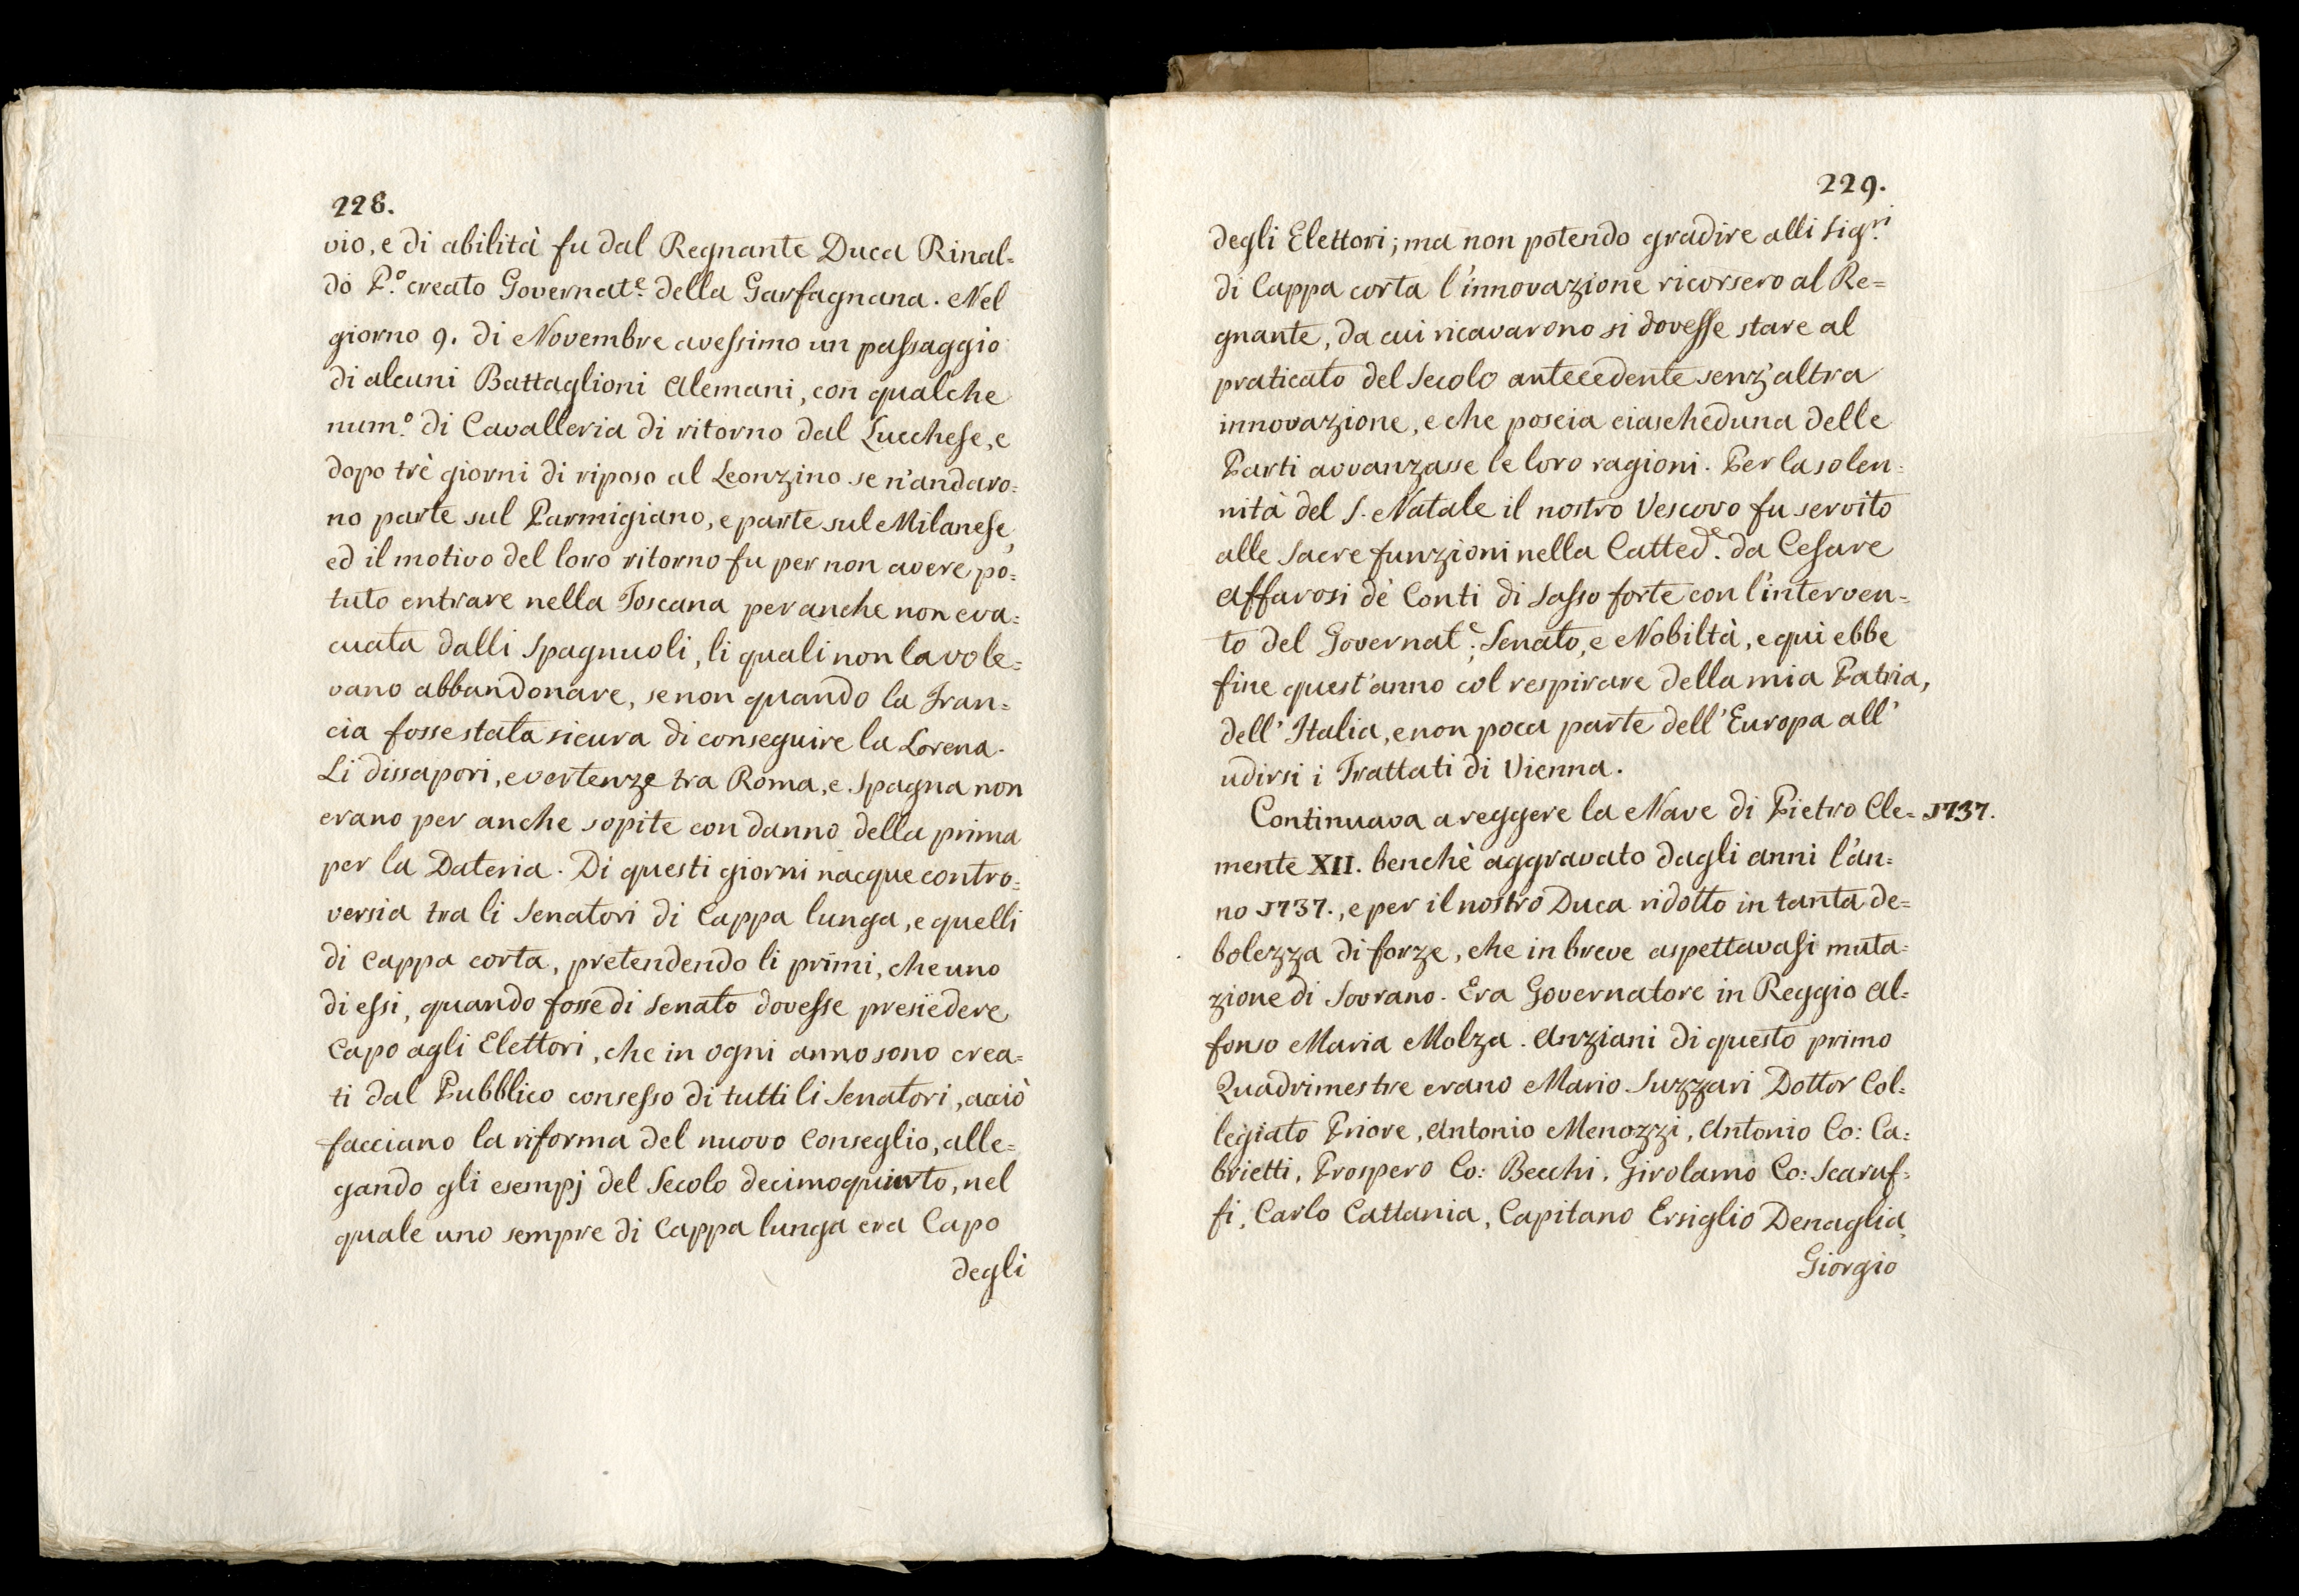 228.
vio, e di abilità fu dal Regnante Duca Rinal=
do P.º creato Governat.e della Garfagnana. Nel
giorno 9. di Novembre avessimo un passaggio
di alcuni Battaglioni Alemani, con qualche
num.º di Cavalleria di ritorno dal Lucchese, e
dopo trè giorni di riposo al Leonzino se n'andaro=
no parte sul Parmigiano, e parte sul Milanese,
ed il motivo del loro ritorno fu per non avere po=
tuto entrare nella Toscana per anche non eva=
cuata dalli Spagnuoli, li quali non la vole=
vano abbandonare, se non quando la Fran=
cia fosse stata sicura di conseguire la Lorena.
Li dissapori, e vertenze tra Roma, e Spagna non
erano per anche sopite con danno della prima
per la Dateria. Di questi giorni nacque contro=
versia tra li Senatori di Cappa lunga, e quelli
di Cappa corta, pretendendo li primi, che uno
di essi, quando fosse di Senato dovesse presiedere
Capo agli Elettori, che in ogni anno sono crea=
ti dal Pubblico consesso di tutti li Senatori, acciò
facciano la riforma del nuovo Conseglio, alle=
gando gli esempj del Secolo decimoquinto, nel
quale uno sempre di Cappa lunga era Capo
degli
229.
degli Elettori; ma non potendo gradire alli Sig.ri
di Cappa corta l'innovazione ricorsero al Re=
gnante, da cui ricavarono si dovesse stare al
praticato del Secolo antecedente senz'altra
innovazione, e che poscia ciascheduna delle
Parti avvanzasse le loro ragioni. Per la solen=
nità del S. Natale il nostro Vescovo fu servito
alle Sacre funzioni nella Catted.e da Cesare
Affarosi dè Conti di Sasso forte con l'interven=
to del Governat.e, Senato, e Nobiltà, e qui ebbe
fine quest'anno col respirare della mia Patria,
dell' Italia, e non poca parte dell' Europa all'
udirsi i Trattati di Vienna.
Continuava a reggere la Nave di Pietro Cle= 1737.
mente XII. benchè aggravato dagli anni l'an=
no 1737., e per il nostro Duca ridotto in tanta de=
bolezza di forze, che in breve aspettavasi muta=
zione di Sovrano. Era Governatore in Reggio Al=
fonso Maria Molza. Anziani di questo primo
Quadrimestre erano Mario Suzzari Dottor Col=
legiato Priore, Antonio Menozzi, Antonio Co: Ca=
brietti, Prospero Co: Becchi, Girolamo Co: Scaruf=
fi, Carlo Cattania, Capitano Ersiglio Denaglia,
Giorgio